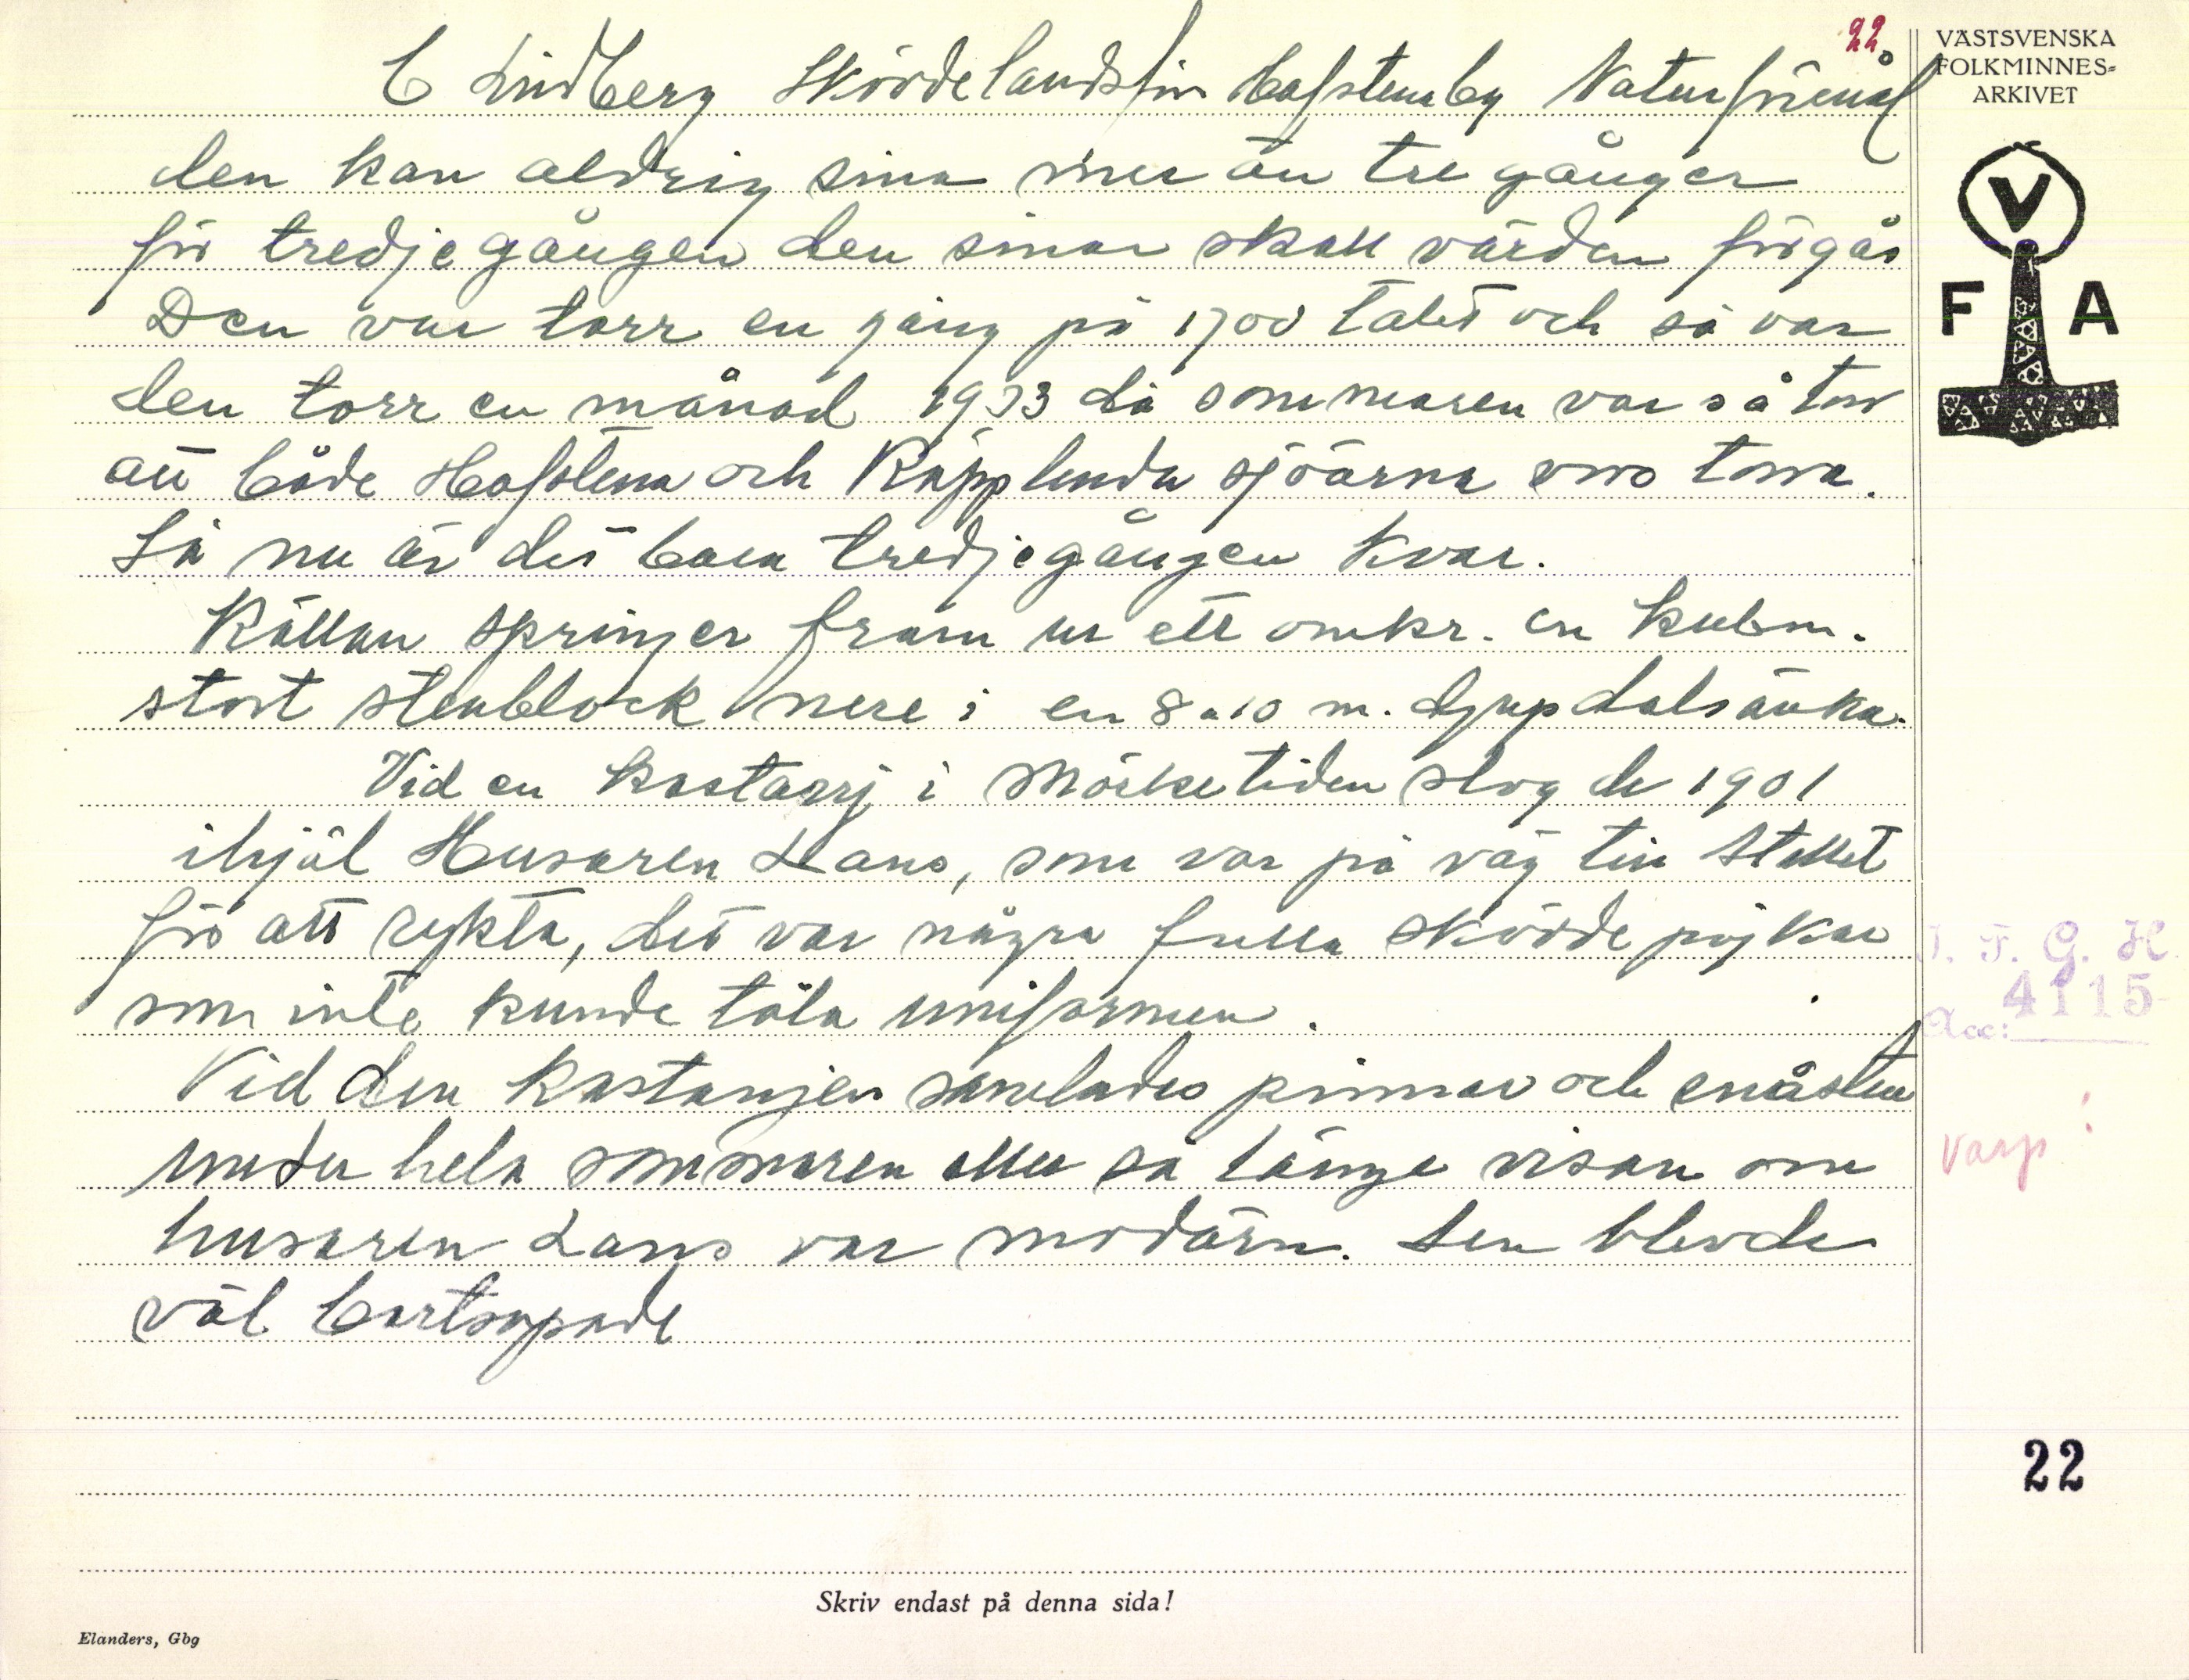 22
VÄSTSVENSKA
FOLKMINNES-
ARKIVET
C Lindberg Skövde landsför Hafstenaby Naturföremål
den kan aldrig sina mer än tre gånger
för tredje gången den sinar skall världen förgås
Den var torr en gång på 1700 talet och så var
den torr en månad 1933 då sommaren var så torr
att både Hafstena och Käpplunda sjöarna voro torra.
Så nu är det bara tredje gången kvar.
Källan springer fram ur ett omkr. en kubm.
stort stenblock nere i en 8 a 10 m. djup dalsänka.
Vid en kastanj i Mörke tiden slog de 1901
ihjäl Husaren Lans, som var på väg till Stallet
för att rykta, det var några fulla skövde pojkar
som inte kunde tåla uniformen.
Vid den kastanjen samlades pinnar och småsten
under hela sommaren eller så länge visan om
husaren Lans var modärn. den blevde
väl bortsopade
V
F A
I. F. G. H.
Acc: 4115
varp!
22
Skriv endast på denna sida!
Elanders, Gbg